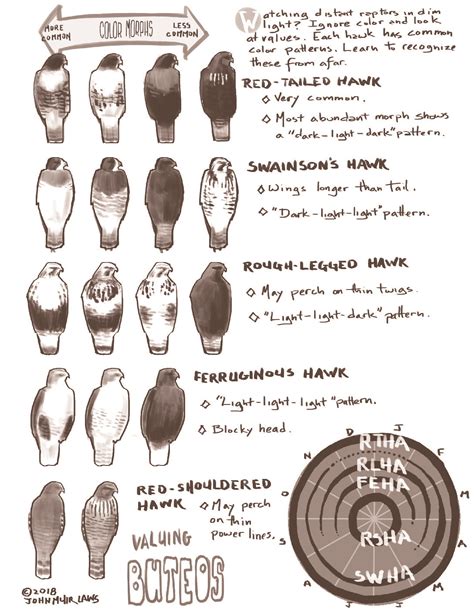 MORE COMMON
COLOR MORPHS
LESS COMMON
Watching distant raptors in dim
light? Ignore color and look
at values. Each hawk has common
color patterns. Learn to recognize
these from afar.
RED-TAILED HAWK
Very common.
Most abundant morph shows
a "dark-light-dark" pattern.
SWAINSON'S HAWK
Wings longer than tail.
"Dark-light-light" pattern.
ROUGH-LEGGED HAWK
May perch on thin twigs.
"Light-light-dark" pattern.
FERRUGINOUS HAWK
"Light-light-light" pattern.
Blocky head.
RED-SHOULDERED
HAWK
May perch
on thin
power lines.
VALUING
BUTEOS
J
F
M
A
M
J
J
A
S
O
N
D
RTHA
RLHA
FEHA
RSHA
SWHA
©2018
JOHN MUIR LAWS